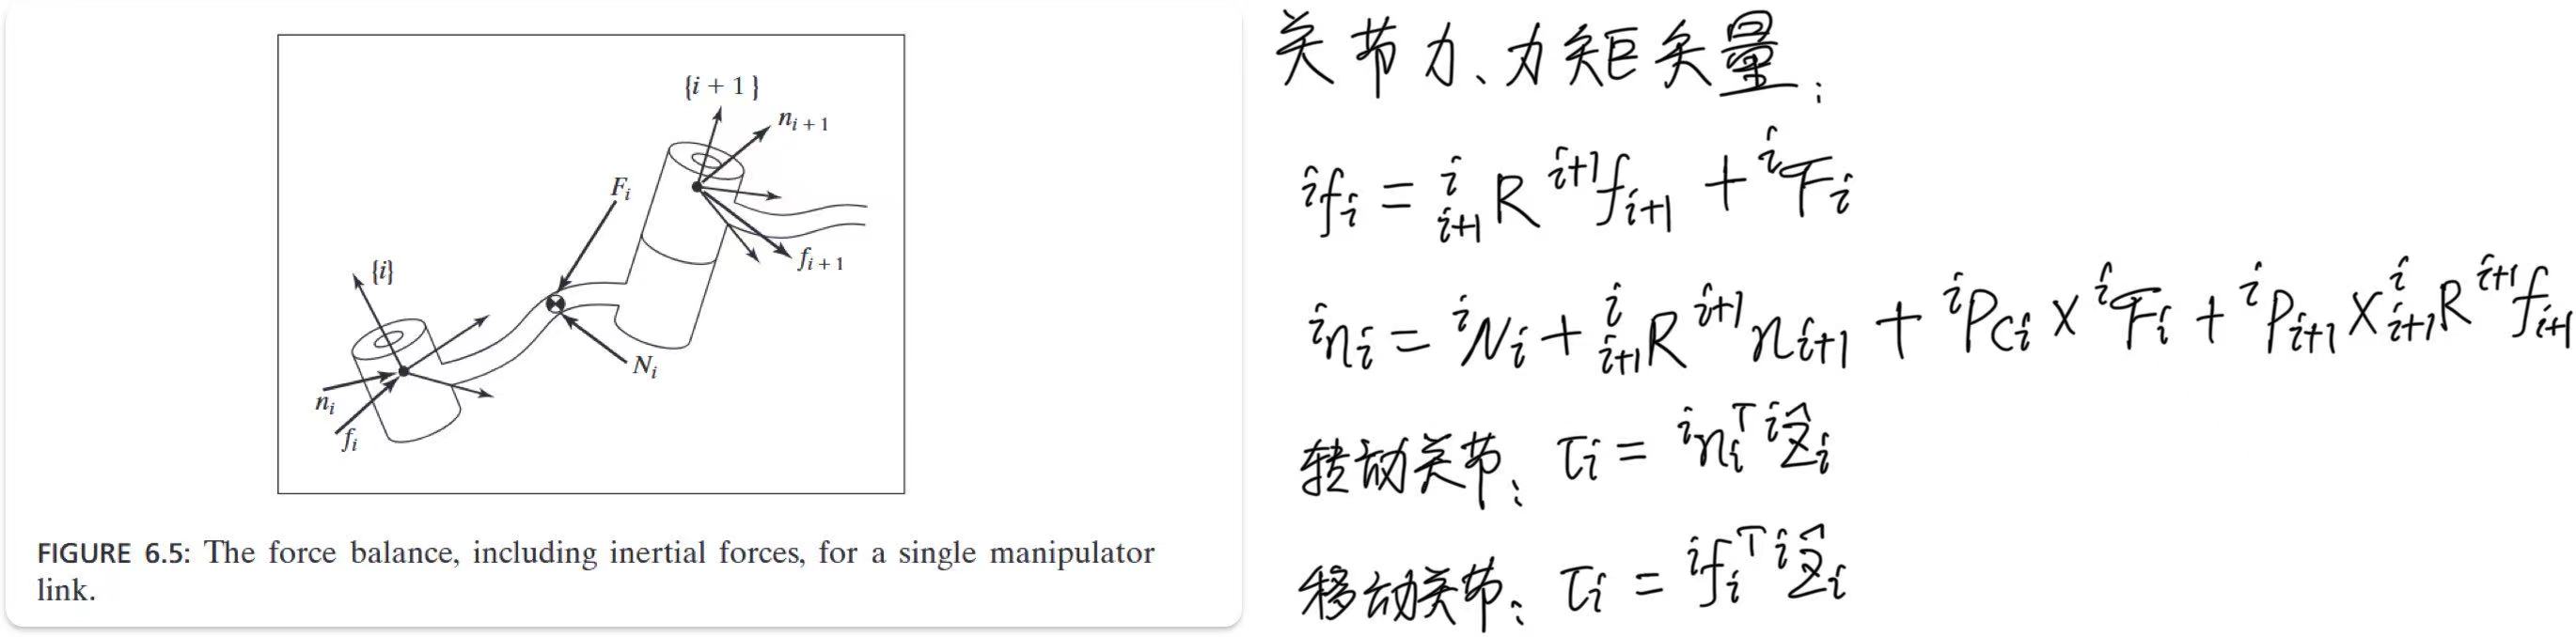 {i + 1}
n_{i+1}
F_i
{i}
f_{i+1}
N_i
n_i
f_i
FIGURE 6.5: The force balance, including inertial forces, for a single manipulator
link.
关节力、力矩矢量:
^i f_i = ^i_{i+1}R ^{i+1}f_{i+1} + ^i F_i
^i n_i = ^i N_i + ^i_{i+1}R ^{i+1}n_{i+1} + ^i P_{Ci} × ^i F_i + ^i P_{i+1} × ^i_{i+1}R ^{i+1}f_{i+1}
转动关节: τ_i = ^i n_i^T ^i Ẑ_i
移动关节: τ_i = ^i f_i^T ^i Ẑ_i